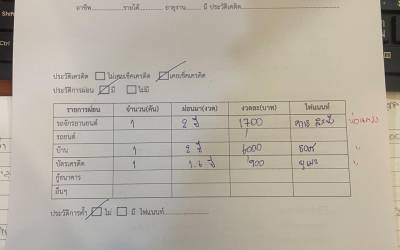 อาชีพ...............รายได้ ............... อายุงาน......... มี ประวัติเครดิต...............
ประวัติเครดิต ไม่เคยเช็คเครดิต เคยเช็คเครดิต
ประวัติการผ่อน มี ไม่มี
รายการผ่อน จำนวน(คัน) ผ่อนมา(งวด) งวดละ(บาท) ไฟแนนท์
รถจักรยานยนต์ 1 2 ปี 1700
รถยนต์
บ้าน 1 2 ปี 4000 ธอส
บัตรเครดิต 1 1.6 ปี 900
กู้ธนาคาร
อื่นๆ
ประวัติการค้ำ ไม่ มี ไฟแนนท์...............